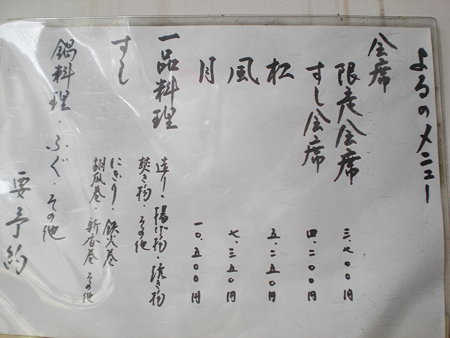 よるのメニュー
会席
限定会席 三、七〇〇円
すし会席 四、二〇〇円
松 五、二五〇円
風 七、三五〇円
月 一〇、五〇〇円
一品料理 造り・揚げ物・焼き物
焚き物 その他
すし にぎり・鉄火巻
胡瓜巻 新香巻 その他
鍋料理・ふぐ・その他
要予約